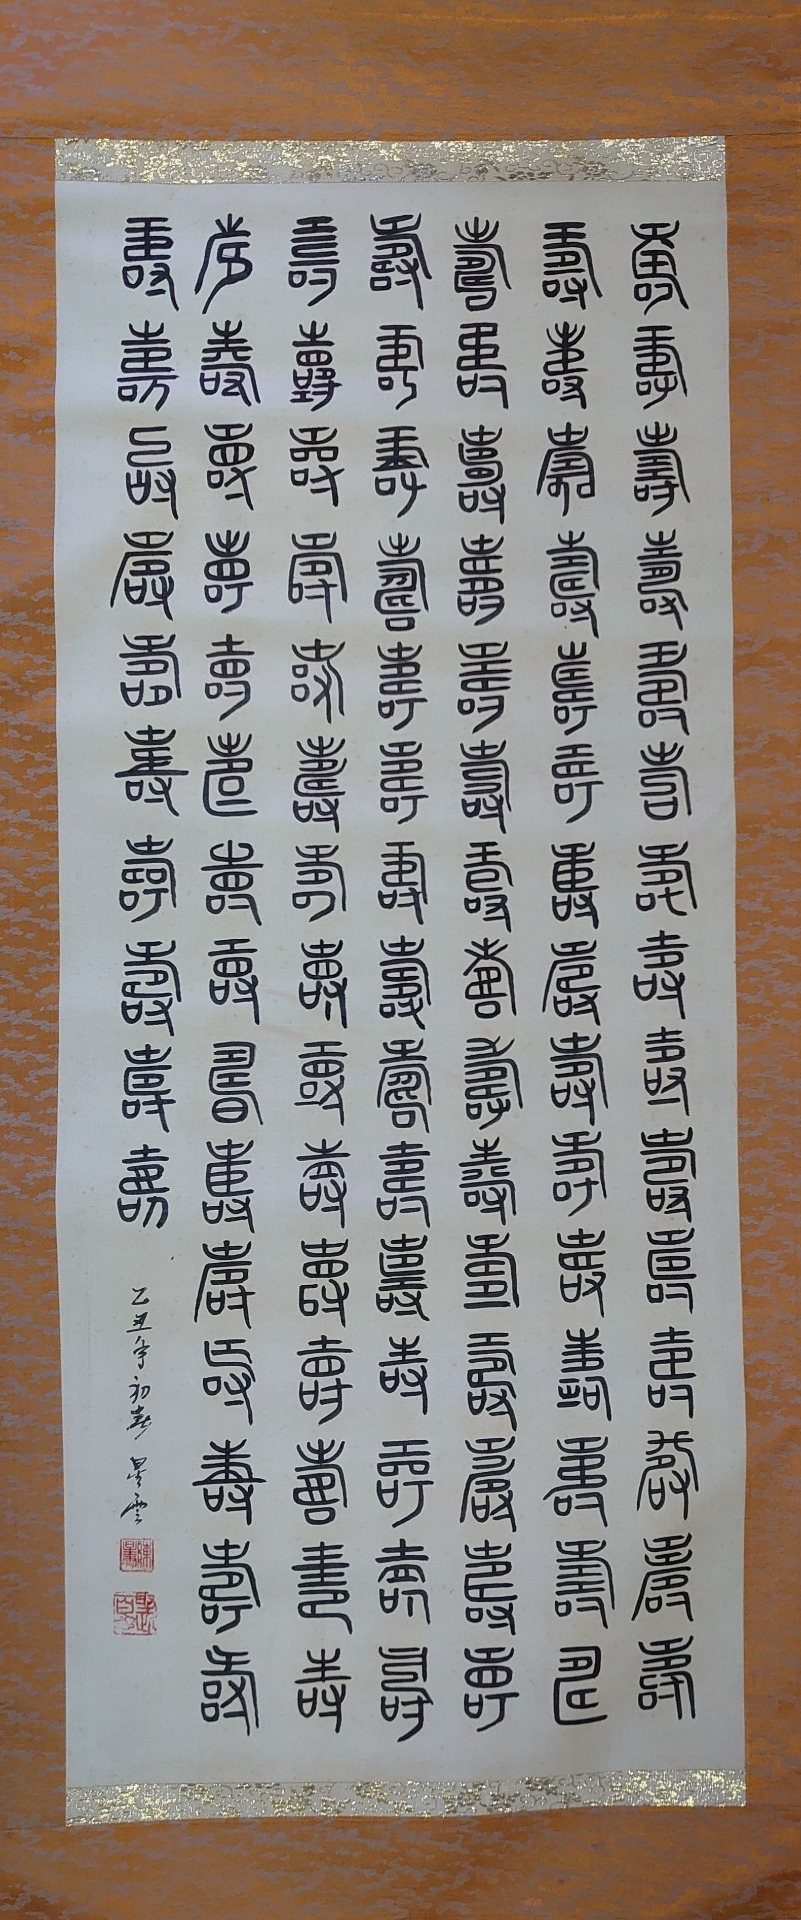 壽壽壽壽壽壽壽壽壽壽壽壽壽壽壽
壽壽壽壽壽壽壽壽壽壽壽壽壽壽壽
壽壽壽壽壽壽壽壽壽壽壽壽壽壽壽
壽壽壽壽壽壽壽壽壽壽壽壽壽壽壽
壽壽壽壽壽壽壽壽壽壽壽壽壽壽壽
壽壽壽壽壽壽壽壽壽壽壽壽壽壽壽
壽壽壽壽壽壽壽壽壽壽
乙丑年初春 星雲